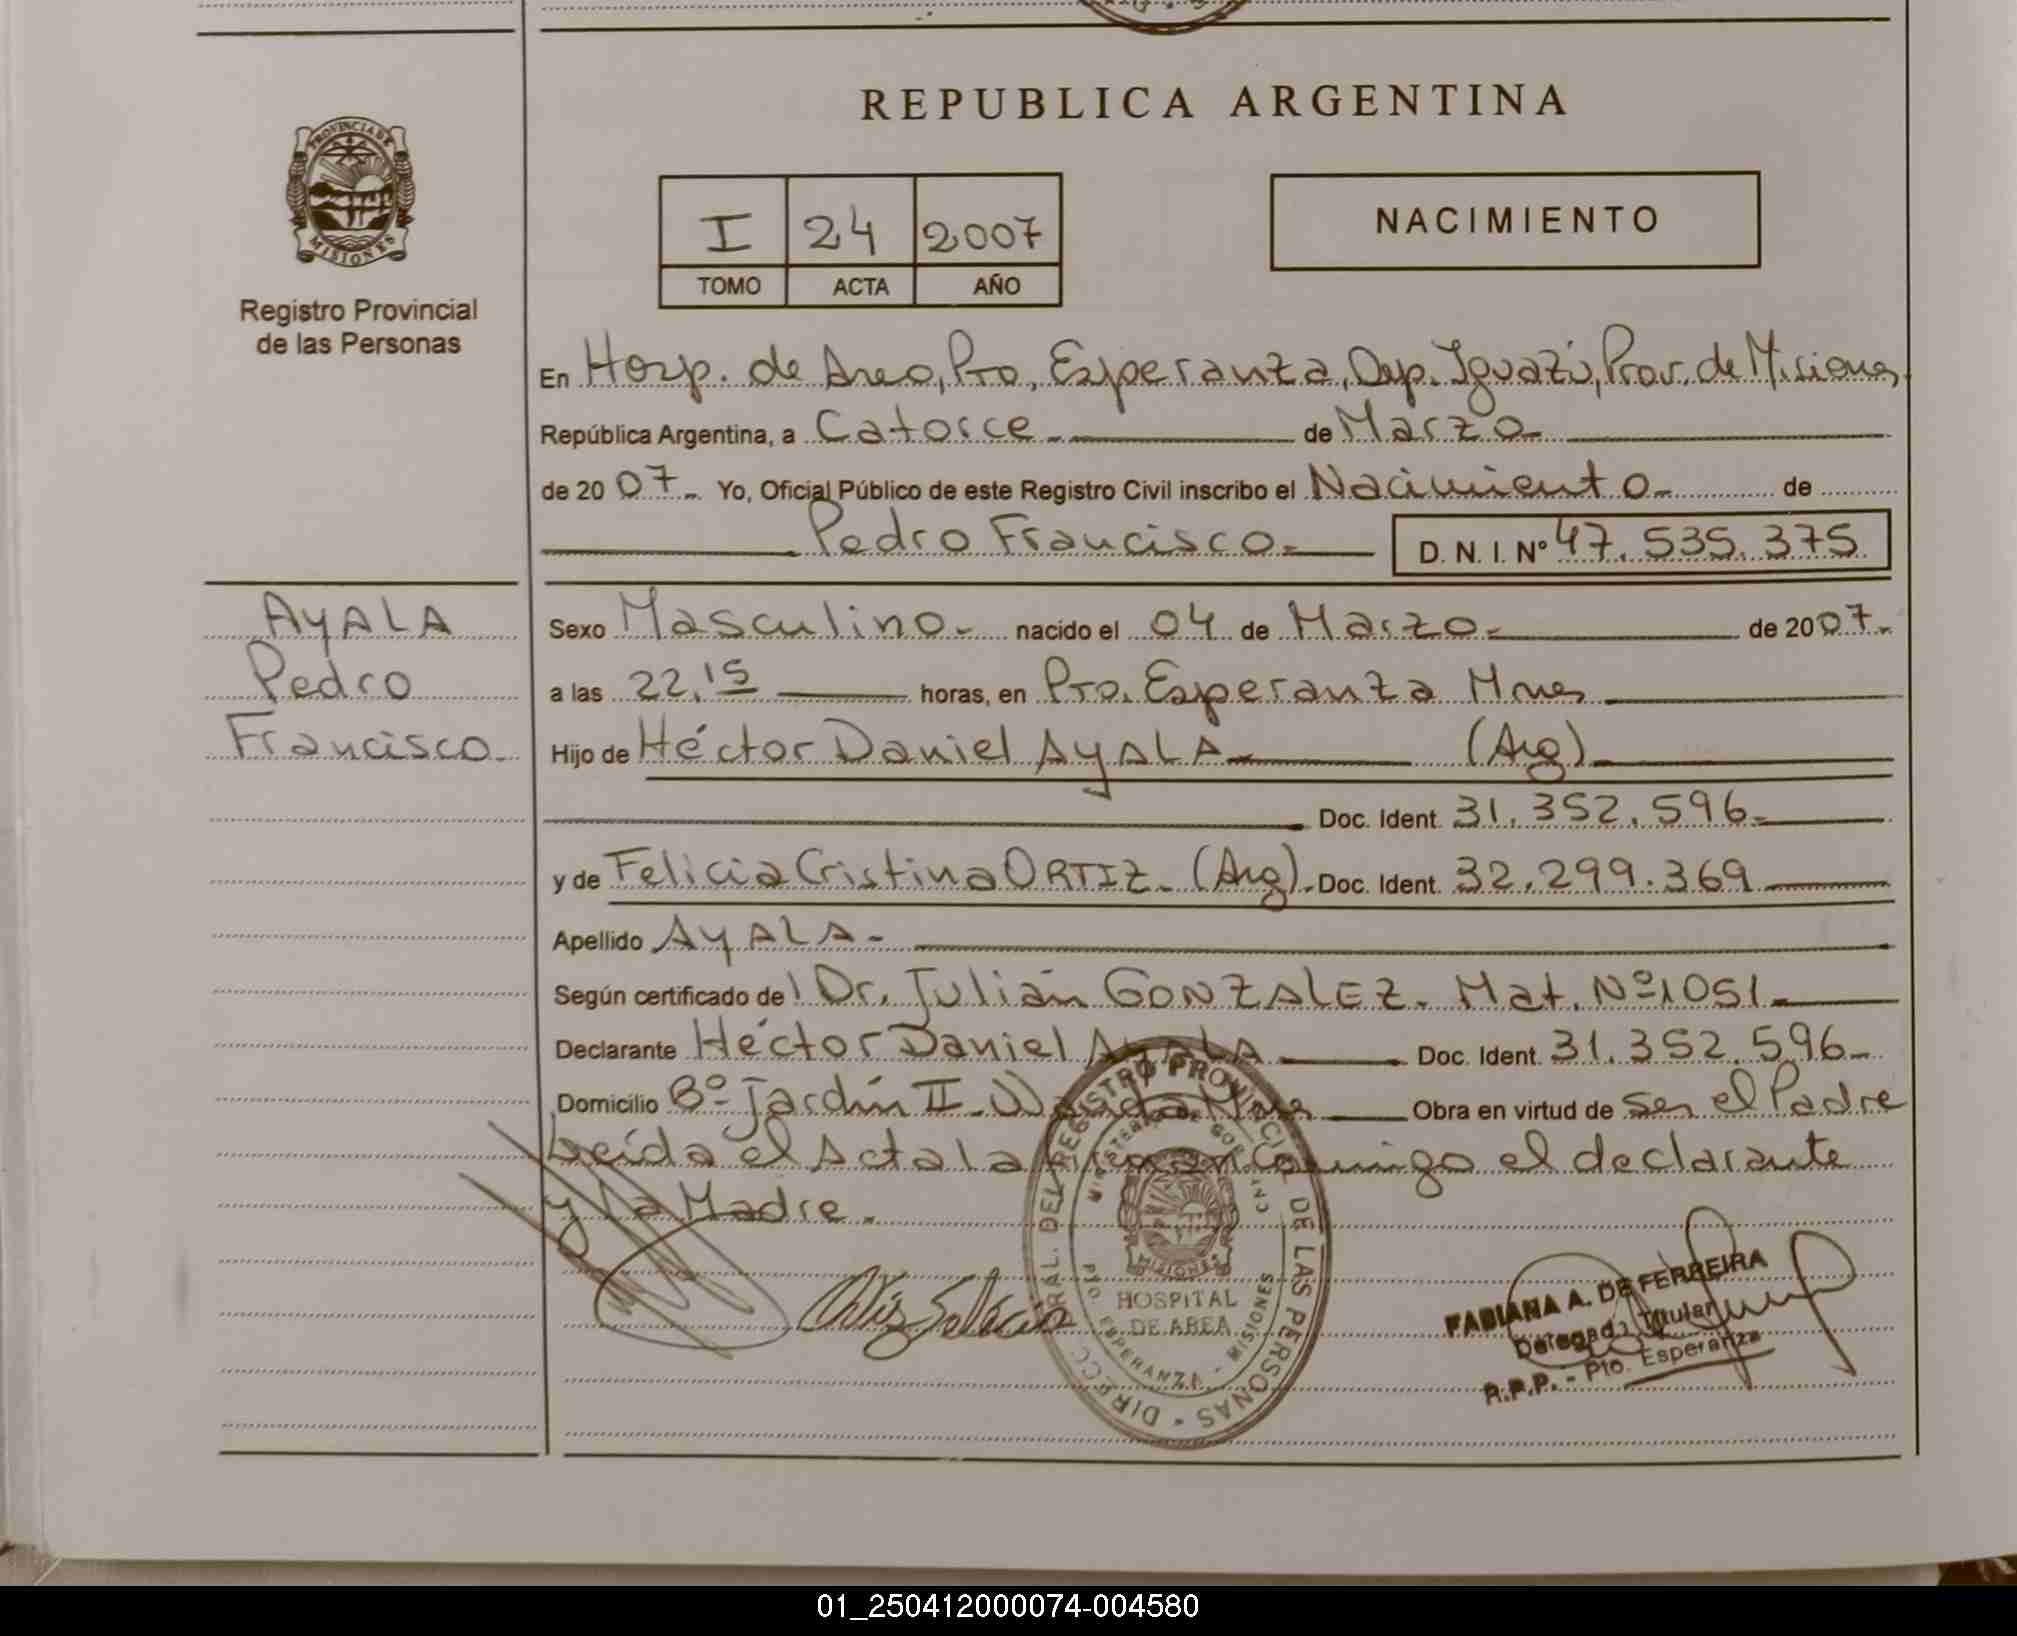 REPUBLICA ARGENTINA
PROVINCIA DE
MISIONES
Registro Provincial
de las Personas
I 24 2007
TOMO ACTA AÑO
NACIMIENTO
En Hosp. de Area, Pto, Esperanza, Dep. Iguazú, Prov. de Misiones,
República Argentina, a Catorce de Marzo
de 2007 Yo, Oficial Público de este Registro Civil inscribo el Nacimiento de
Pedro Francisco D. N. I. Nº 47.535.375
AYALA
Pedro
Francisco
Sexo Masculino nacido el 04 de Marzo de 2007
a las 22.15 horas, en Pto. Esperanza Mnes
Hijo de Héctor Daniel AYALA (Arg)
Doc. Ident. 31.352.596
y de Felicia Cristina ORTIZ (Arg). Doc. Ident. 32.299.369
Apellido AYALA
Según certificado del Dr. Julián GONZALEZ. Mat. Nº 1051
Declarante Héctor Daniel AYALA Doc. Ident. 31.352.596
Domicilio Bº Jardín II Wanda Mnes Obra en virtud de ser el Padre
Leída el Acta la firman conmigo el declarante
y la Madre.
Ortiz Felicia
DIRECC. GRAL. DEL REGISTRO PROVINCIAL DE LAS PERSONAS
MINISTERIO DE GOB
MISIONES
HOSPITAL
DE AREA
PTO. ESPERANZA - MISIONES
FABIANA A. DE FERREIRA
Delegada Titular
R.P.P. - Pto. Esperanza
01_250412000074-004580